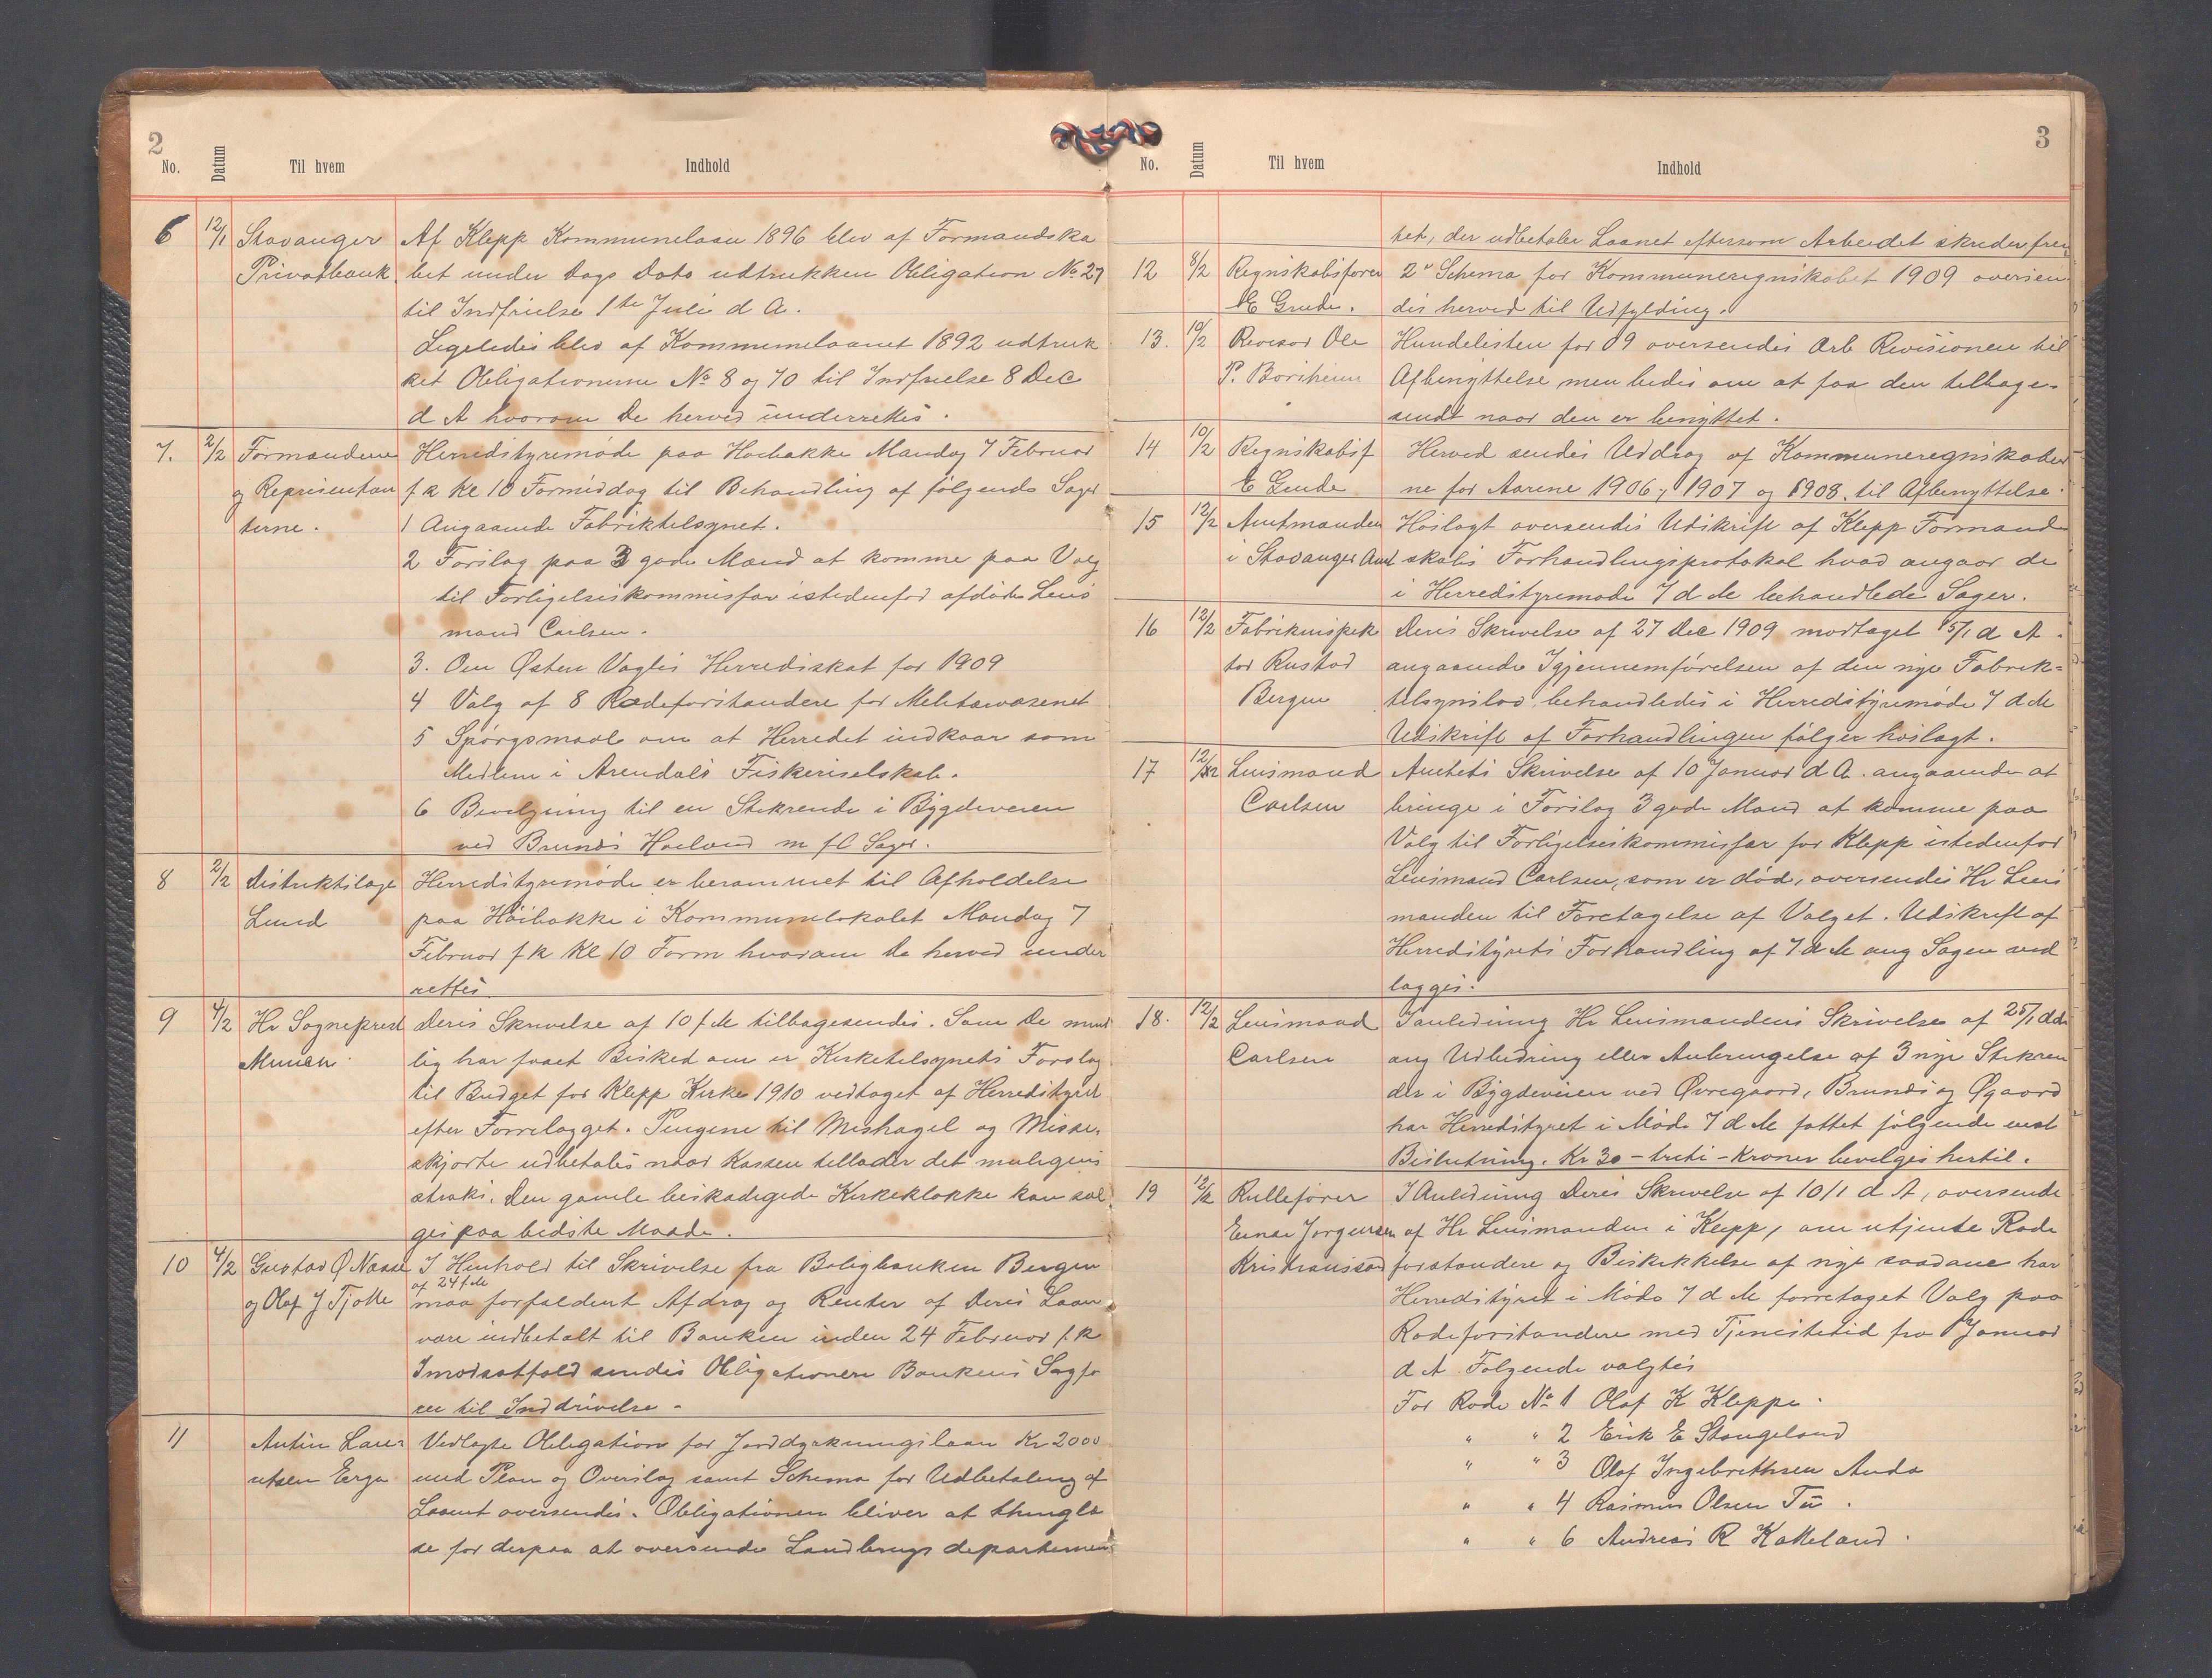 2
No. Datum Til hvem Indhold
6 12/1 Stavanger Af Klepp Kommunelaan 1896 blev af Formandska
Privatbank. bet under Dags Dato udtrukken Obligation No 27
til Indfrielse 1ste Juli d A.
Ligeledes blev af Kommunelaanet 1892 udtruk
ket Obligationerne No 8 og 70 til Indfrielse 8 Dec
d A hvorom De herved underrettes.
7. 2/2 Formændene Herredstyremøde paa Hoebakke Mandag 7 Februar
og Repræsentan f k Kl 10 Formiddag til Behandling af følgende Sager
terne. 1 Angaaende Fabriktilsynet.
2 Forslag paa 3 gode Mænd at komme paa Valg
til Forligelseskommissær istedenfor afdøde Lens
mand Carlsen.
3. Om Østen Vagles Herredsskat for 1909
4 Valg af 8 Rodeforstandere for Militærvæsenet
5 Spørgsmaal om at Herredet indkaar som
Medlem i Arendals Fiskeriselskab.
6 Bevilgning til en Stikrende i Bygdeveien
ved Brunes Haeland m fl Sager.
8 2/2 Distriktslæge Herredstyremøde er berammet til Afholdelse
Lund paa Höibakke i Kommunelokalet Mandag 7
Februar f k Kl 10 Form hvorom De herved under
rettes.
9 4/2 Hr Sogneprest Deres Skrivelse af 10 f M tilbagesendes. Som De mund
Munch lig har faaet Besked om er Kirketilsynets Forslag
til Budget for Klepp Kirke 1910 vedtaget af Herredstyret
efter Forrelægget. Pengene til Meshagel og Messe-
skjorte udbetales naar Kassen tillader det muligens
straks. Den gamle beskadigede Kirkeklokke kan sæl
ges paa bedste Maade.
10 4/2 Gustav Ø Næsse I Henhold til Skrivelse fra Boligbanken Bergen
af 24 f M
og Olaf J Tjøtte maa forfaldent Afdrag og Renter af Deres Laan
være indbetalt til Banken inden 24 Februar f.k
Imodsatfald sendes Obligationen Bankens Sagfø
rer til Inddrivelse.
11 Antin Laur Vedlagte Obligation for Jorddyrkningslaan Kr 2000
itsen Erga med Plan og Overslag samt Schema for Udbetaling af
Laanet oversendes. Obligationen bliver at thinglæ
se for derpaa at oversende Landbrugs departemen
3
No. Datum Til hvem Indhold
tet, der udbetaler Laanet eftersom Arbeidet skrider frem
12 8/2 Regnskabsfører 2de Schema for Kommuneregnskabet 1909 oversen
E Grude. des herved til Udfylding.
13. 10/2 Revisor Ole Hundelisten for 09 oversendes Ærb Revisionen til
P. Borsheim Afbenyttelse men bedes om at faa den tilbage-
sendt naar den er benyttet.
14 10/2 Regnskabsf Herved sendes Uddrag af Kommuneregnskaber
E Grude ne for Aarene 1906, 1907 og 1908 til Afbenyttelse.
15 12/2 Amtmanden Hoslagt oversendes Udskrift af Klepp Formand
i Stavanger Amt skabs Forhandlingsprotokol hvad angaar de
i Herredstyremøde 7 d M behandlede Sager.
16 12/2 Fabrikinspek Deres Skrivelse af 27 Dec 1909 modtaget 15/1 d A.
tør Rustad angaaende Igjennemførelsen af den nye Fabrik-
Bergen tilsynslov behandledes i Herredstyremøde 7 d M
Udskrift af Forhandlingen følger hoslagt.
17 12/2 Lensmand Amtets Skrivelse af 10 Januar d A. angaaende at
Carlsen bringe i Forslag 3 gode Mænd at komme paa
Valg til Forligelseskommissær for Klepp istedenfor
Lensmand Carlsen, som er død, oversendes Hr Lens
manden til Foretagelse af Valget. Udskrift af
Herredstyrets Forhandling af 7 d M ang Sagen ved
lægges.
18. 12/2 Lensmand I anledning Hr Lensmandens Skrivelse af 25/1 d A
Carlsen ang Udbedring eller Anbringelse af 3 nye Stikren
der i Bygdeveien ved Øvregaard, Brunes og Øgaard
har Herredstyret i Møde 7 d M fattet følgende enst
Beslutning. Kr 30 - treti - Kroner bevilges hertil.
19 12/2 Rullefører I Anledning Deres Skrivelse af 10/1 d A, oversendt
Einar Jørgensen af Hr Lensmanden i Klepp, om utjente Rode
Kristianssad forstandere og Beskikkelse af nye saadane har
Herredstyret i Møde 7 d M forretaget Valg paa
Rodeforstandere med Tjenestetid fra 1 Januar
d A. Følgende valgtes
For Rode No 1 Olaf K Kleppe.
" " 2 Erik E Stangeland
" " 3 Olaf Ingebrethsen Anda
" " 4 Rasmus Olsen Tu.
" " 6 Andreas R Katteland.